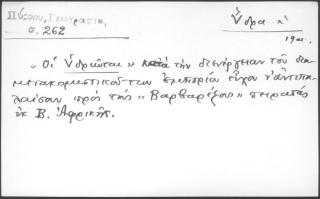 Πύρρου, Γεωγραφία,
σ. 262
Ὕδρα
19
"Οἱ Ὑδριῶται" κατὰ τὴν διενέργειαν τοῦ δια-
μετακομιστικοῦ των ἐμπορίου εἶχον ν' ἀντιπα-
λαίσουν πρὸς τοὺς "Βαρβαρέζους" πειρατάς
ἐκ Β. Ἀφρικῆς.